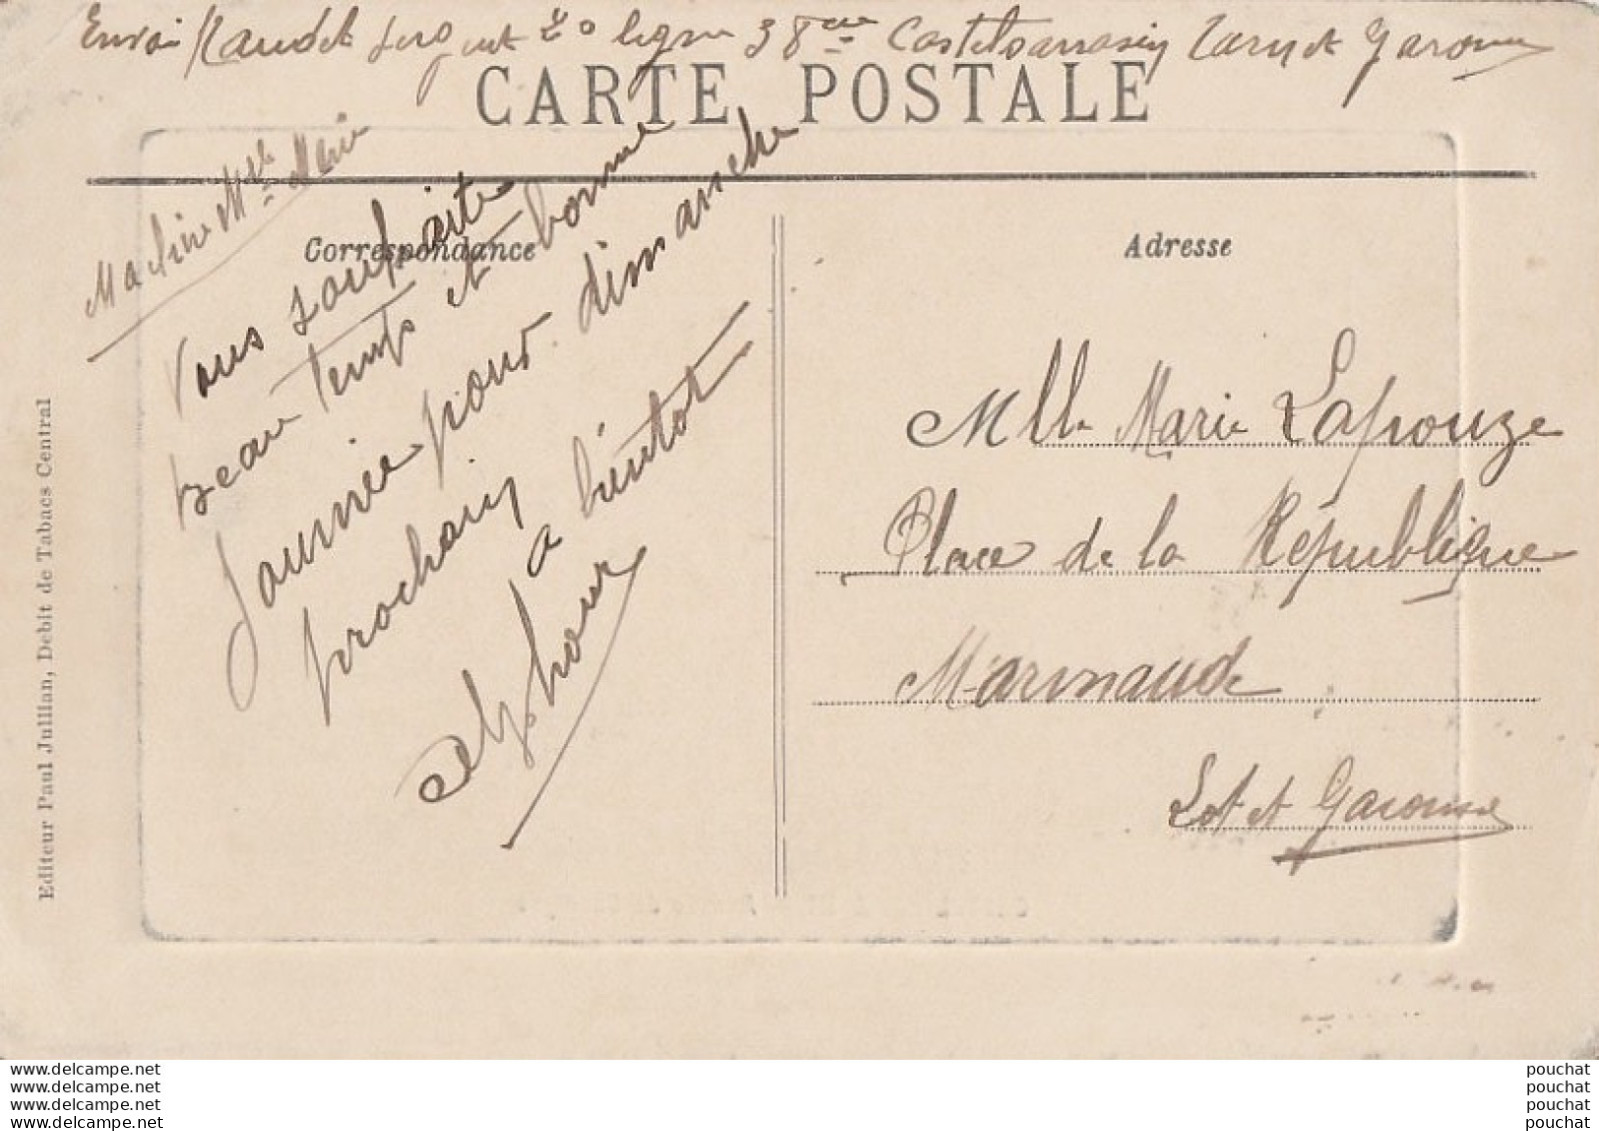 Envoi Naudet sergent 20e ligne 38eme Castelsarrasin Tarn et Garonne
CARTE POSTALE
Mlle Marie
Correspondance
Vous souhaite
beau temps et bonne
Journée pour dimanche
prochain
a bientot
Alphonse
Adresse
Mlle Marie Laprouze
Place de la République
Marmande
Lot et Garonne
Editeur Paul Jullian, Debit de Tabacs Central
www.delcampe.net
www.delcampe.net
www.delcampe.net
www.delcampe.net
pouchat
pouchat
pouchat
pouchat